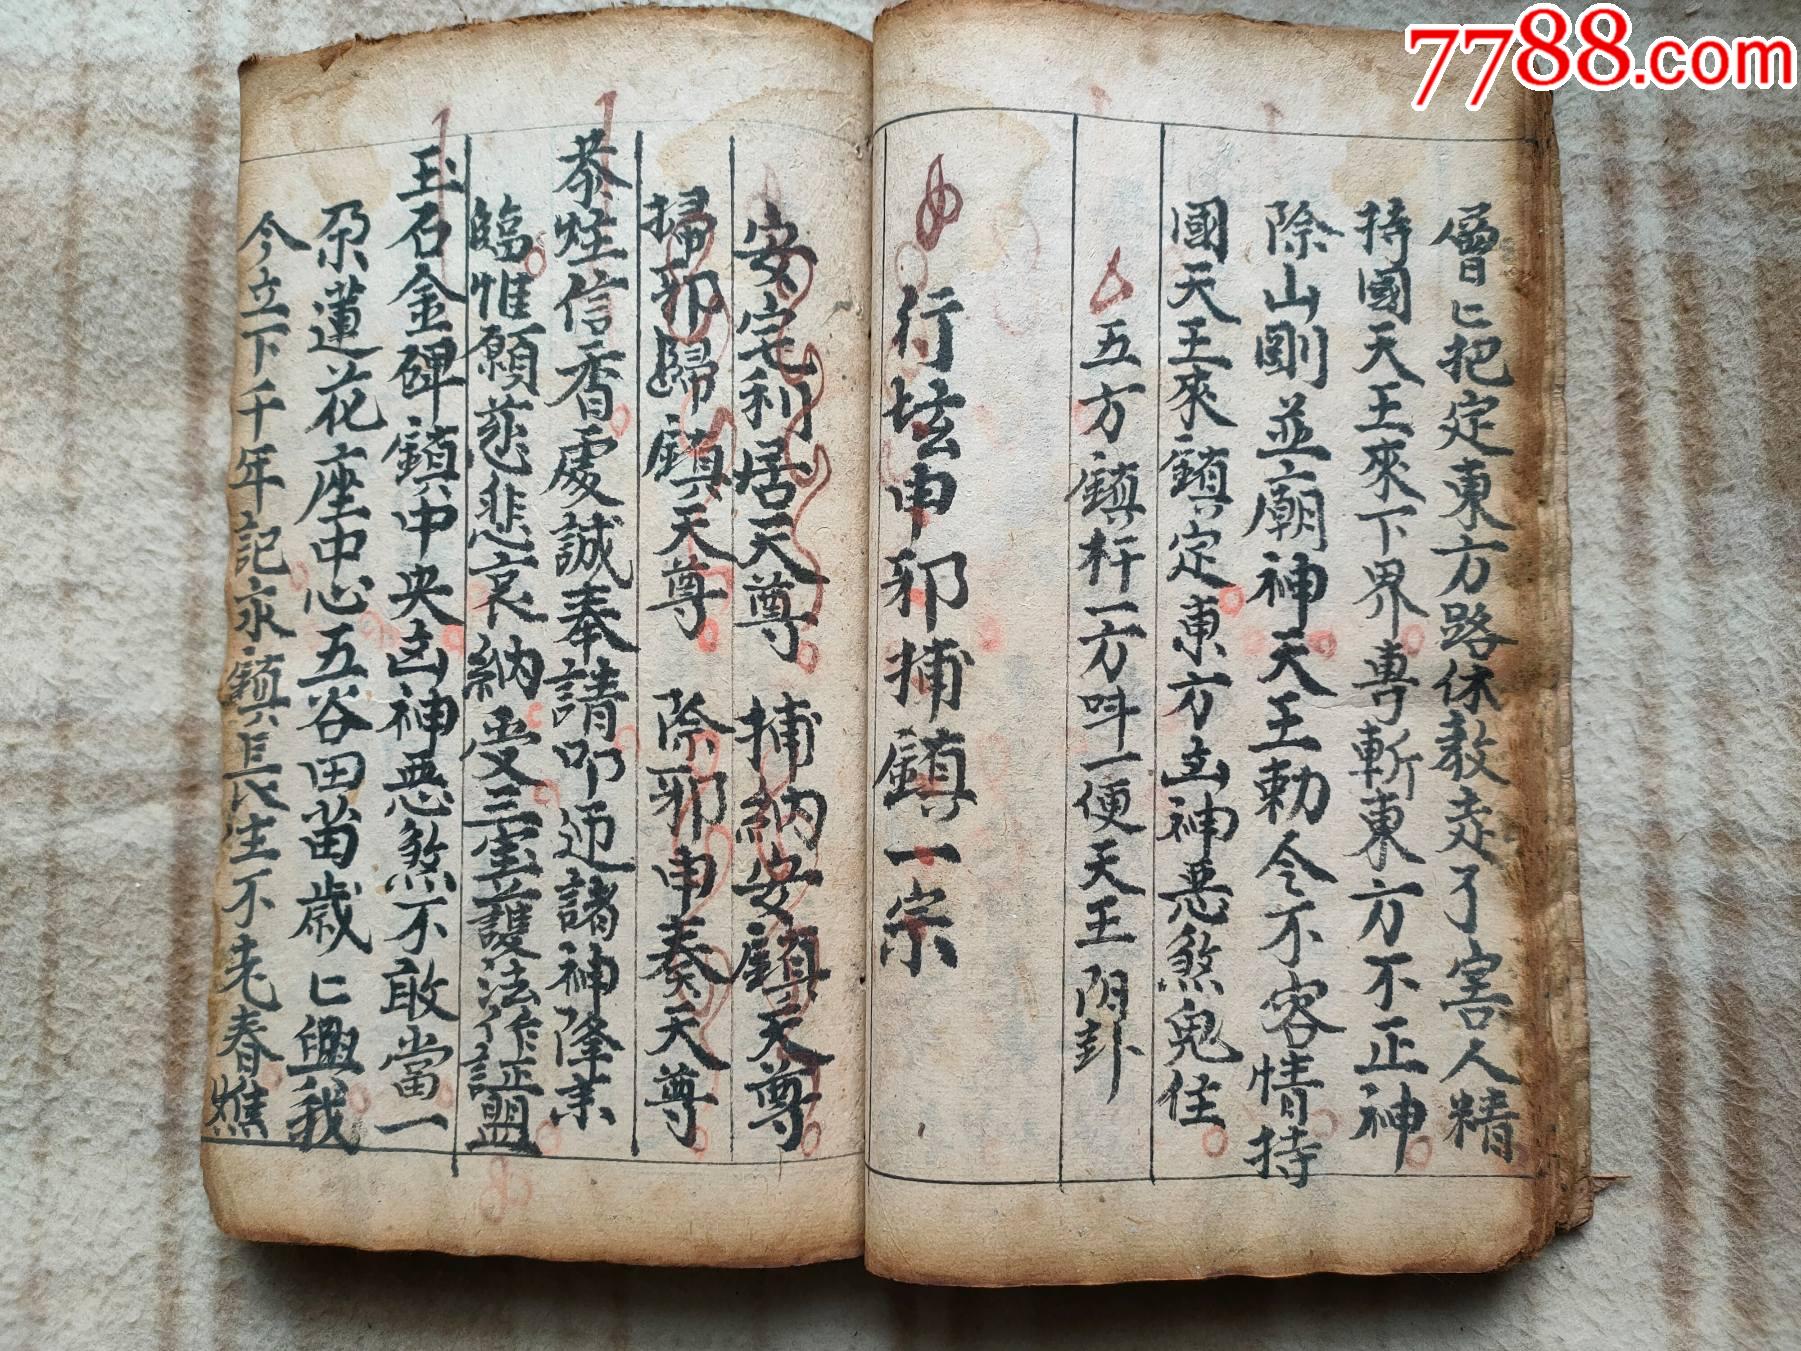 7788.com
層〻把定東方路休教走了害人精
持國天王來下界專斬東方不正神
除山剛並廟神天王勅令不容情持
國天王來鎮定東方凶神惡煞鬼住
五方鎮杆一方呌一便天王阴卦
行坛申邪捕鎮一宗
安宅利居天尊 捕納安鎮天尊
掃邪歸鎮天尊 除邪申奏天尊
恭炷信香虔誠奉請叩迓諸神隆来
臨惟願慈悲哀納受三宝護法作証盟
玉石金碑鎮中央凶神惡煞不敢當一
朶蓮花座中心五谷田苗歲〻興我
今立下千年記永鎮長生不老春燋